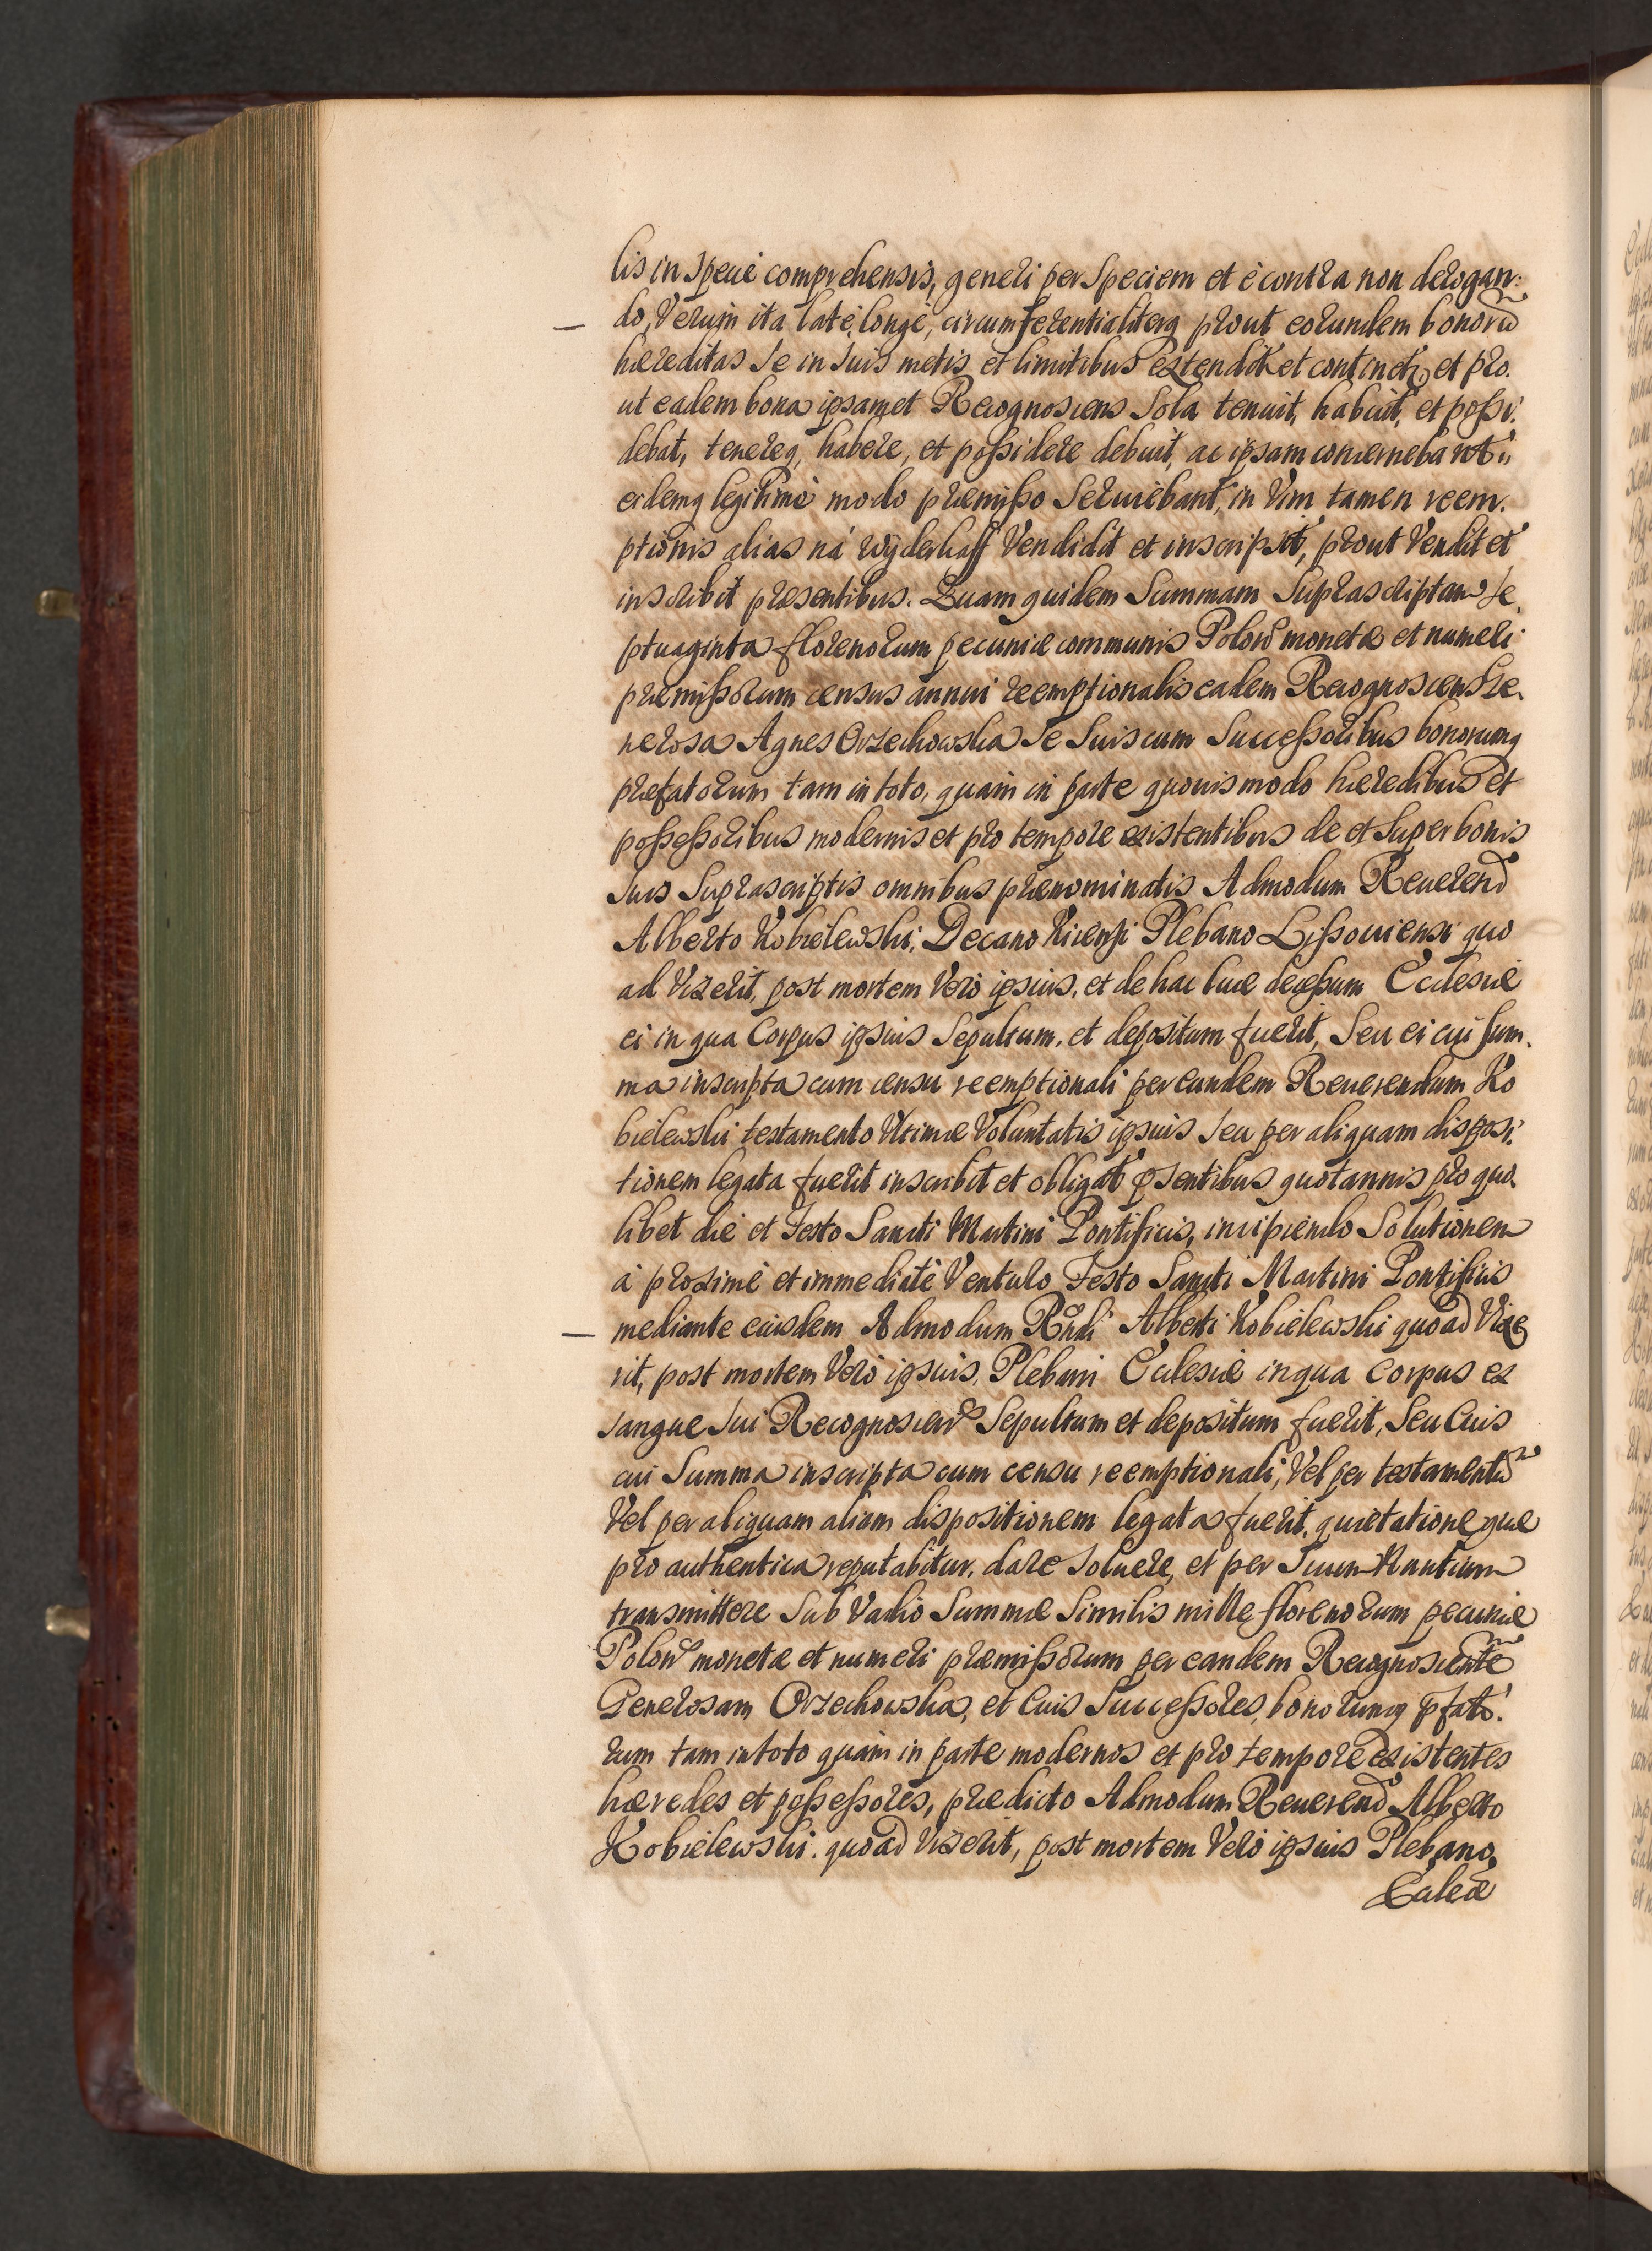 lis in Specie comprehensis, generi per Speciem et è contra non derogan:
do, Verum ita latè, longè, circumferentialiterq prout eorundem bonorū
hæreditas Se in Suis metis et limitibus extendit et continet, et pro.
ut eadem bona ipsamet Recognoscens Sola tenuit, habuit, et possi:
debat, tenereq, habere, et possidere debuit, ac ipsam concernebant
eidemq legitimè modo præmisso Seruiebant, in Vim tamen reem.
ptionis alias ná wyderkaff Vendidit et inscripsit, prout Vendit et
inscribit præsentibus. Quam quidem Summam Suprascriptam Se
ptuaginta florenorum pecuniæ communis Polon monetæ et numeri
præmissorum census annui reemptionalis eadem Recognoscens Ge.
nerosa Agnes Orzechowska Se Suis cum Successoribus bonorumq
præfatorum tam in toto, quam in parte quouismodo hæredibus et
possessoribus modernis et pro tempore existentibus de et Super bonis
Suis Suprascriptis omnibus prænominatis Admodum Reuerend
Alberto Kobielewski, Decano Plebano Lissouiensi quo
ad Vixerit, post mortem Verò ipsius, et de hac luce decessum Ecclesiæ
ei in qua Corpus ipsius Sepultum, et depositum fuerit, Seu ei cui Sum.
ma inscripta cum censu reemptionali per eundem Reuerendum Ko
bielewski testamento Vltimæ Voluntatis ipsius Seu per aliquam disposi:
tionem legata fuerit inscribit et obligat psentibus quotannis pro quo.
libet die et Festo Sancti Martini Pontificis, incipiendo Solutionem
à proximè et immediatè Venturo Festo Sancti Martini Pontificis
mediante eiusdem Admodum Rndi Alberti Kobielewski quoad Vixe
rit, post mortem Verò ipsius, Plebani Ecclesiæ in qua Corpus ex
sangue Sui Recognoscen Sepultum et depositum fuerit, Seu Euis
cui Summa inscripta cum censu reemptionali, Vel per testamentū
Vel per aliquam aliam dispositionem legata fuerit, quietatione quæ
pro authentica reputabitur, dare Soluere, et per Suum Nuntium
transmittere Sub Vadio Summæ Similis mille florenorum pecuniæ
Polon monetæ et numeri præmissorum per eandem Recognoscentē
Generosam Orzechowska, et Euis Successores, bonorumq pfato:
rum tam in toto quàm in parte modernos et pro tempore existentes
hæredes et possessores, prædicto Admodum Reuerend Alberto
Kobielewski. quoad Vixerit, post mortem Verò ipsius Plebano,
Eccleæ